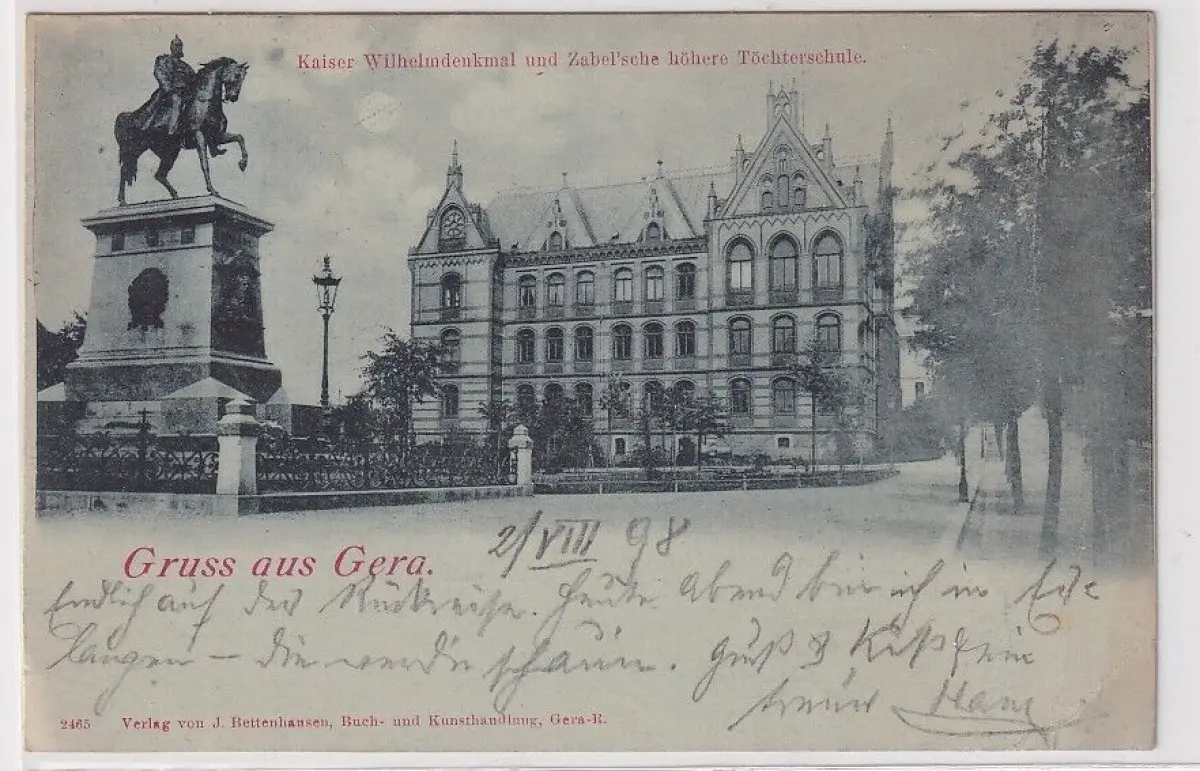 Kaiser Wilhelmdenkmal und Zabel'sche höhere Töchterschule.
Gruss aus Gera.
2/VIII 98
Endlich auf der Rückreise. Heute Abend bin ich in
langen – die werde schauen. Gruß & Kuß
Hans
2465 Verlag von J. Bettenhausen, Buch- und Kunsthandlung, Gera-R.